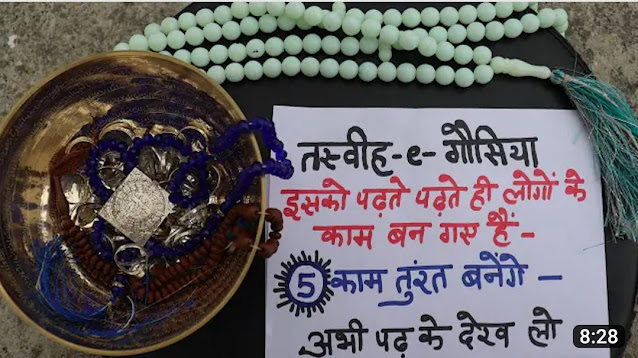 तस्वीह-e-गौसिया
इसको पढ़ते पढ़ते ही लोगों के
काम बन गए हैं-
5 काम तुरंत बनेंगे -
अभी पढ़ के देख लो
8:28